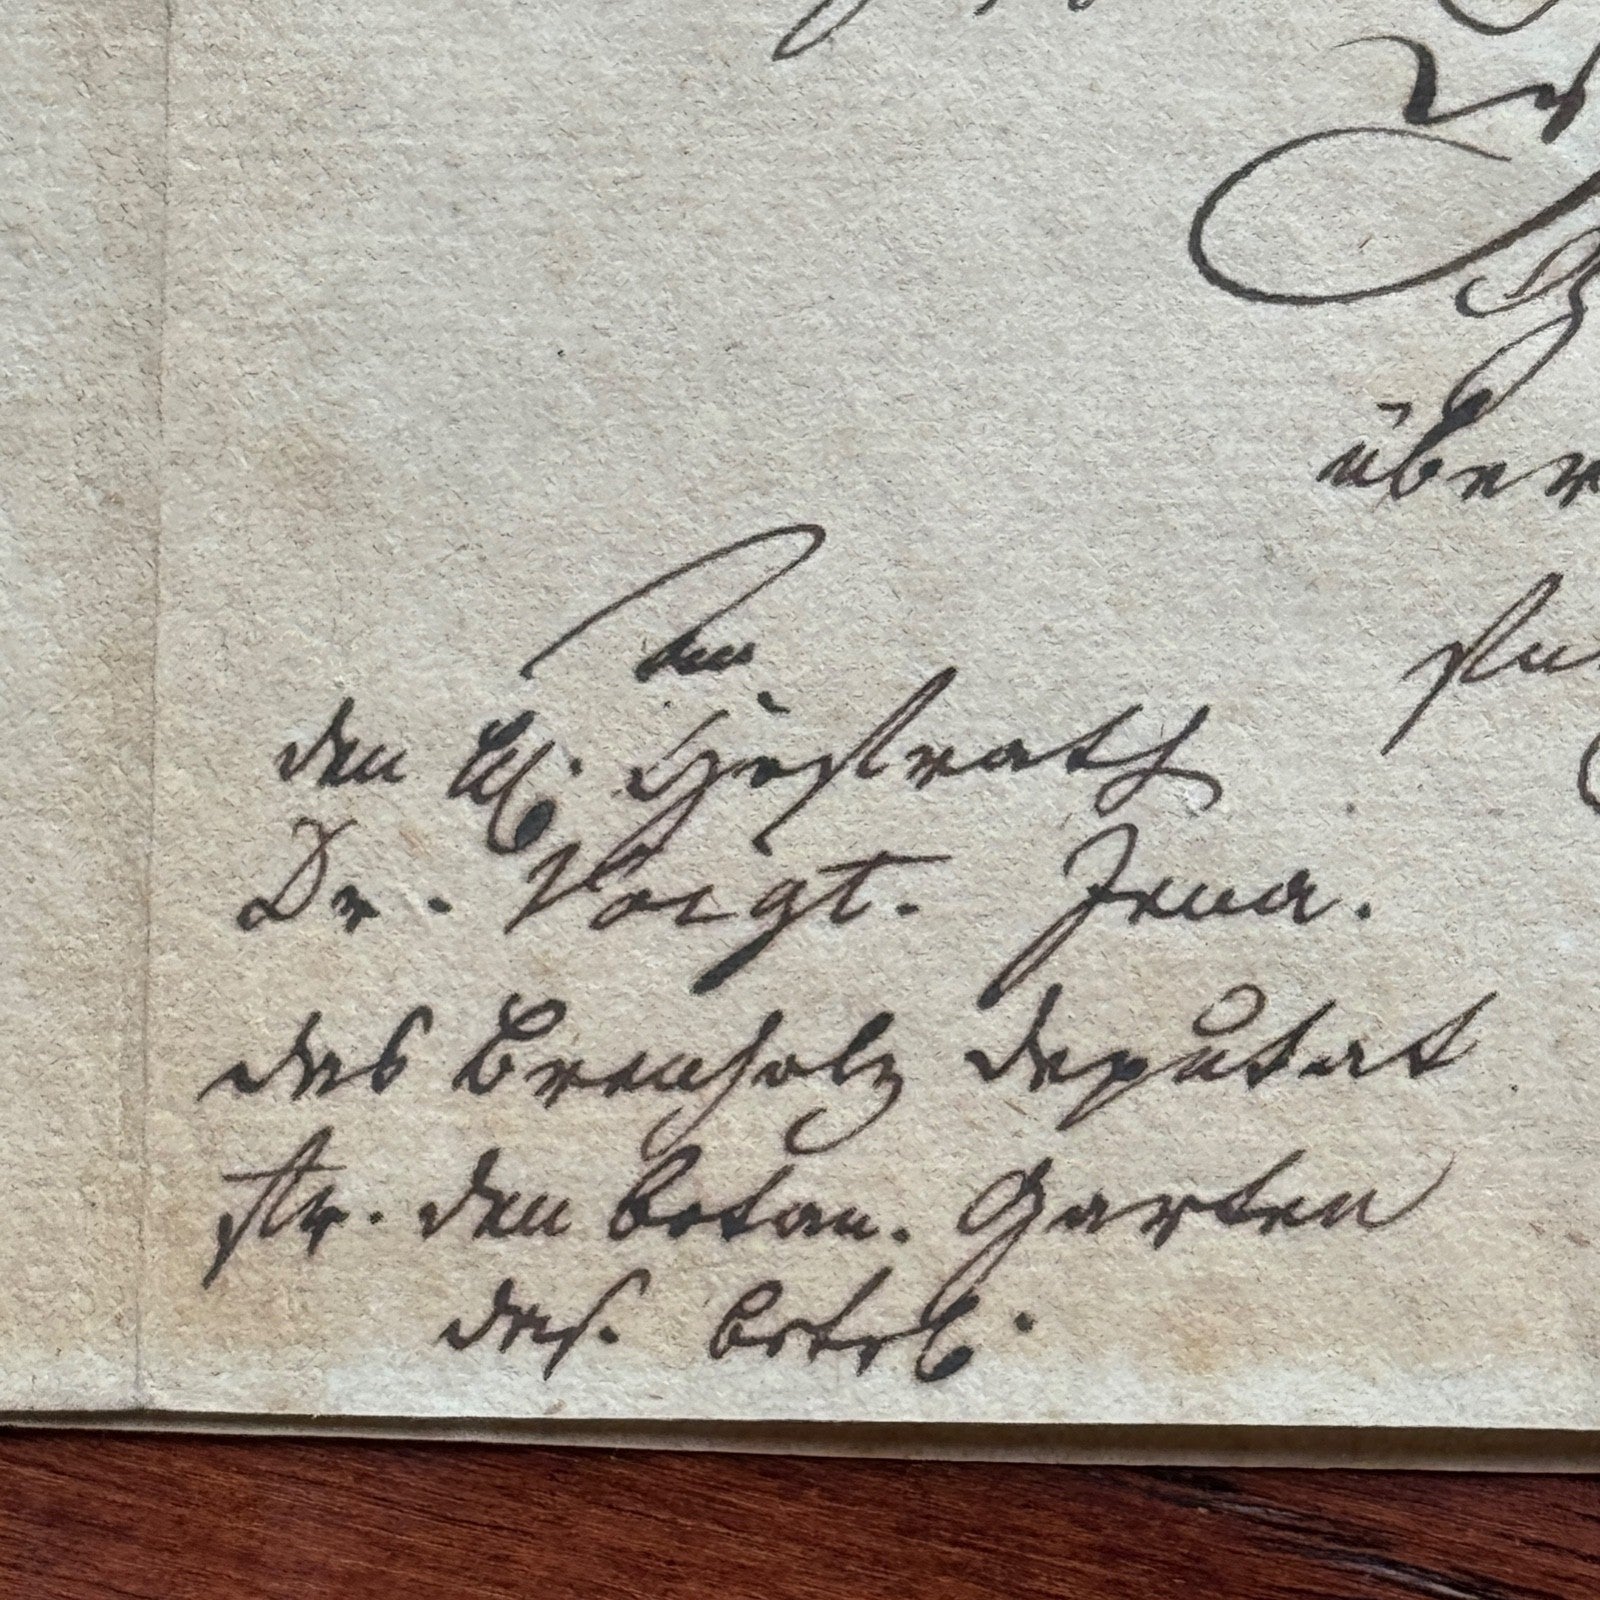 über
An
den H. Hofrath
Dr. Voigt. Jena.
das Brenholz deputat
für den botan. Garten
das. betrf.